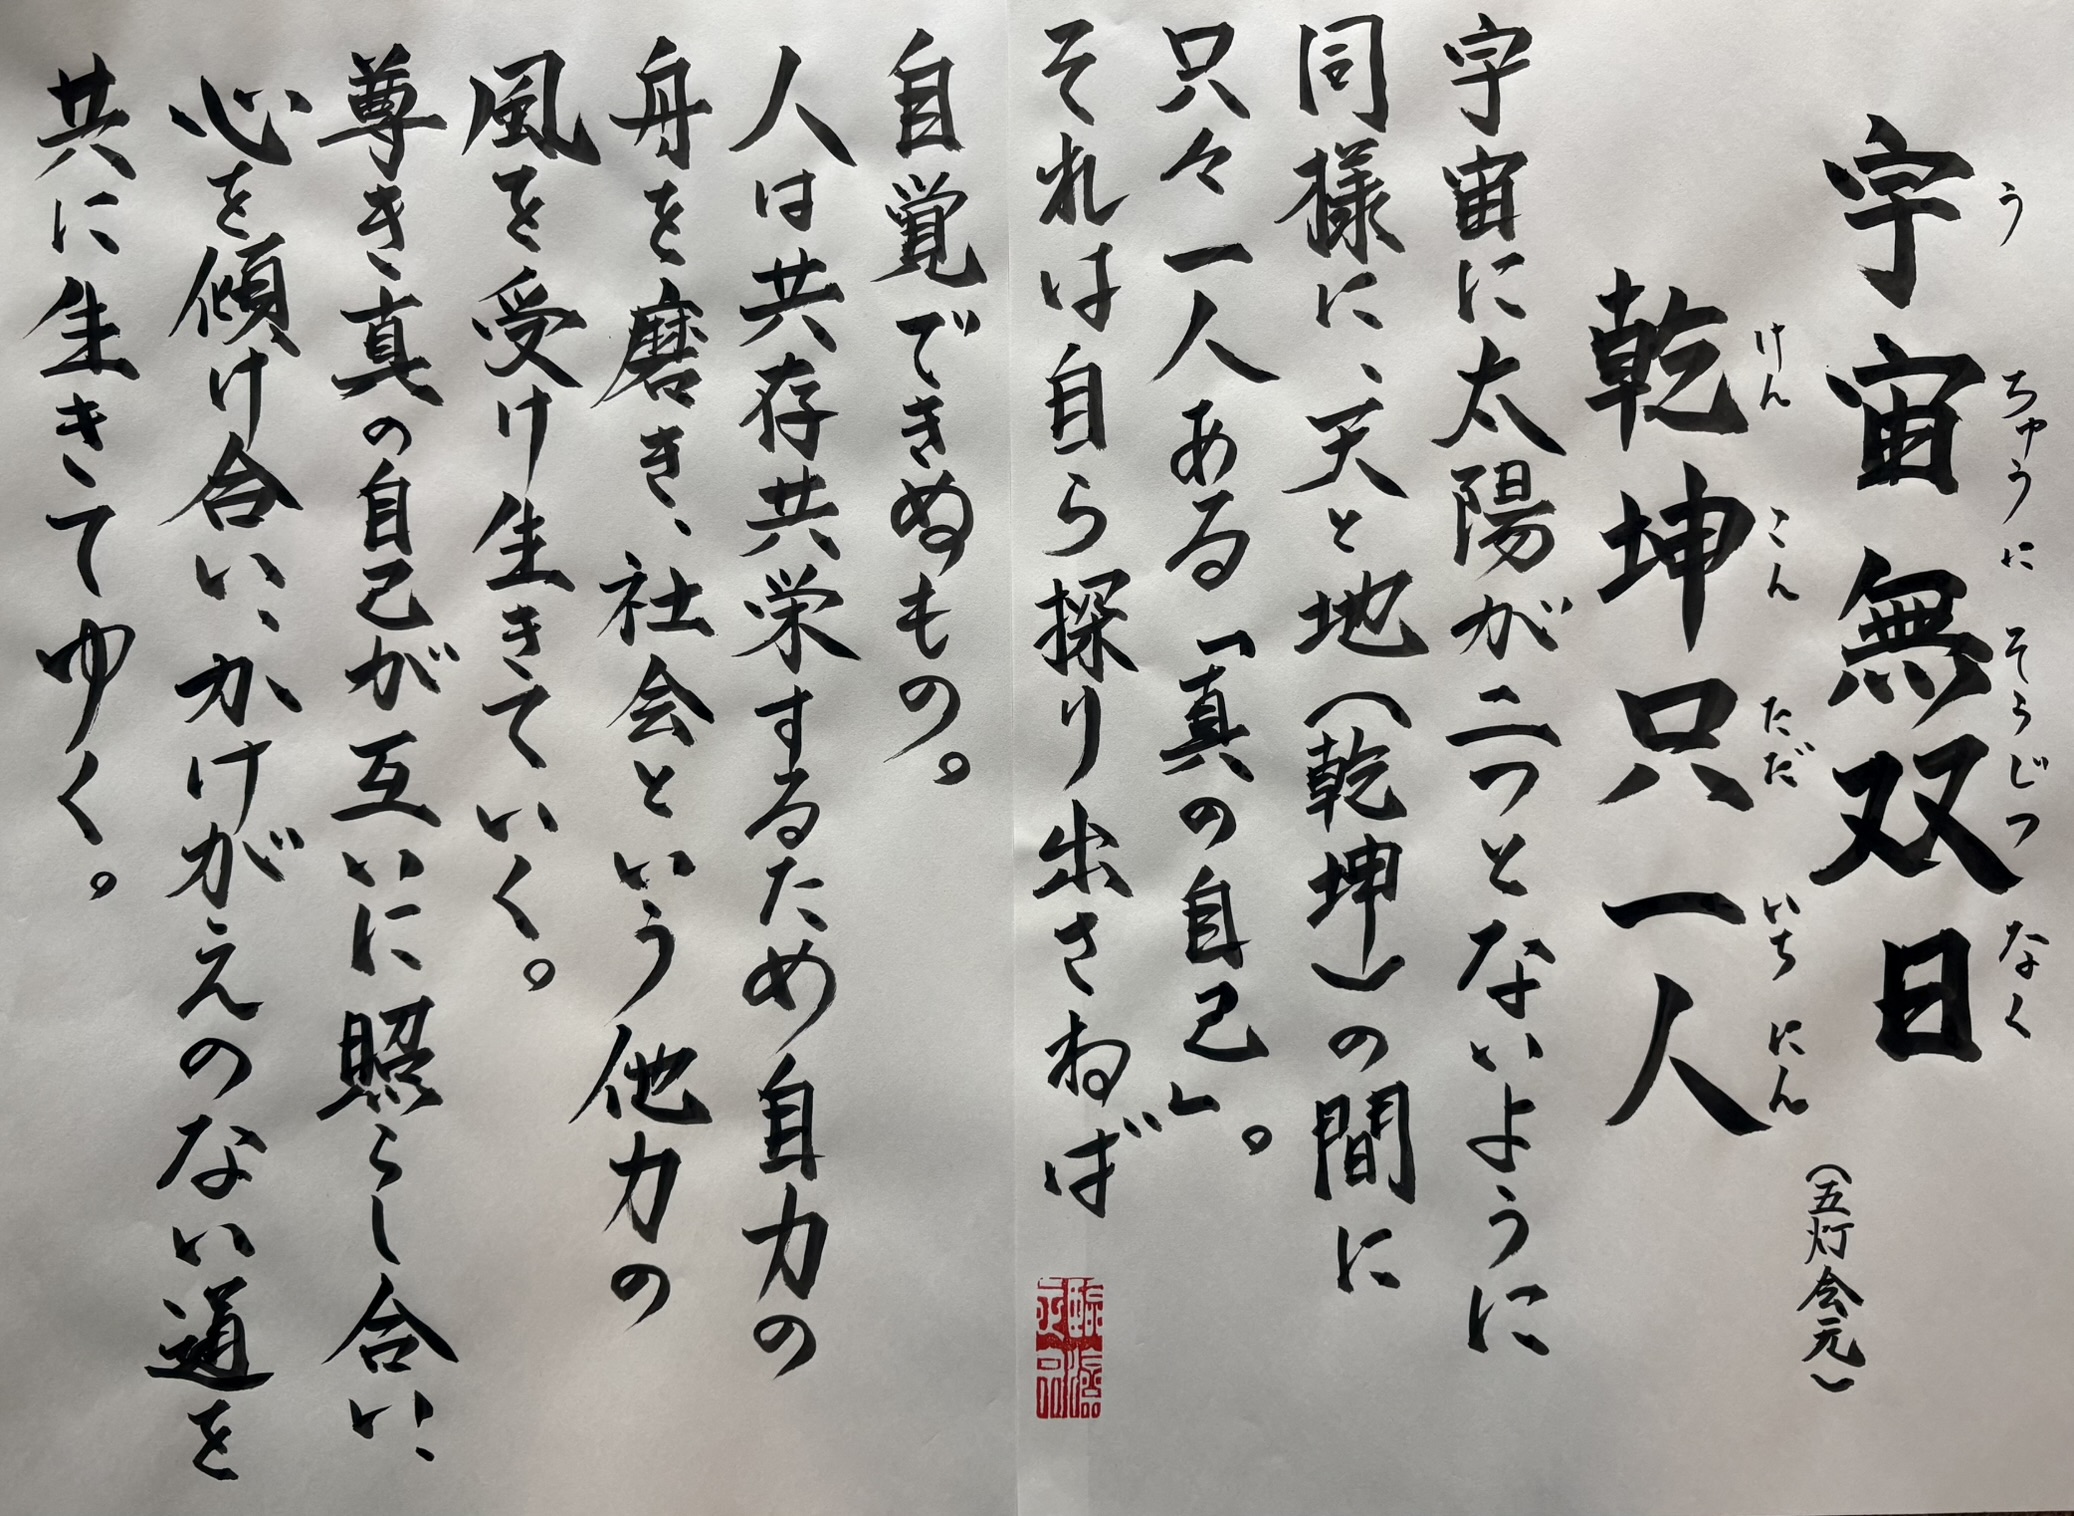 宇宙無双日
うちゅうにそうじつなく
乾坤只一人
けんこんただいちにん
（五灯会元）
宇宙に太陽が二つとないように
同様に、天と地（乾坤）の間に
只々一人ある「真の自己」。
それは自ら探り出さねば
自覚できぬもの。
人は共存共栄するため自力の
舟を磨き、社会という他力の
風を受け生きていく。
尊き真の自己が互いに照らし合い、
心を傾け合い、かけがえのない道を
共に生きてゆく。